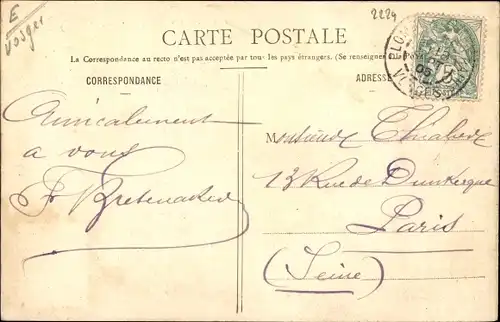 E
Vosges
2224
CARTE POSTALE
La Correspondance au recto n'est pas acceptée par tous les pays étrangers. (Se renseigner
CORRESPONDANCE
ADRESSE
Amicalement
a vous
Monsieur
13 Rue de Dunkerque
Paris
(Seine)